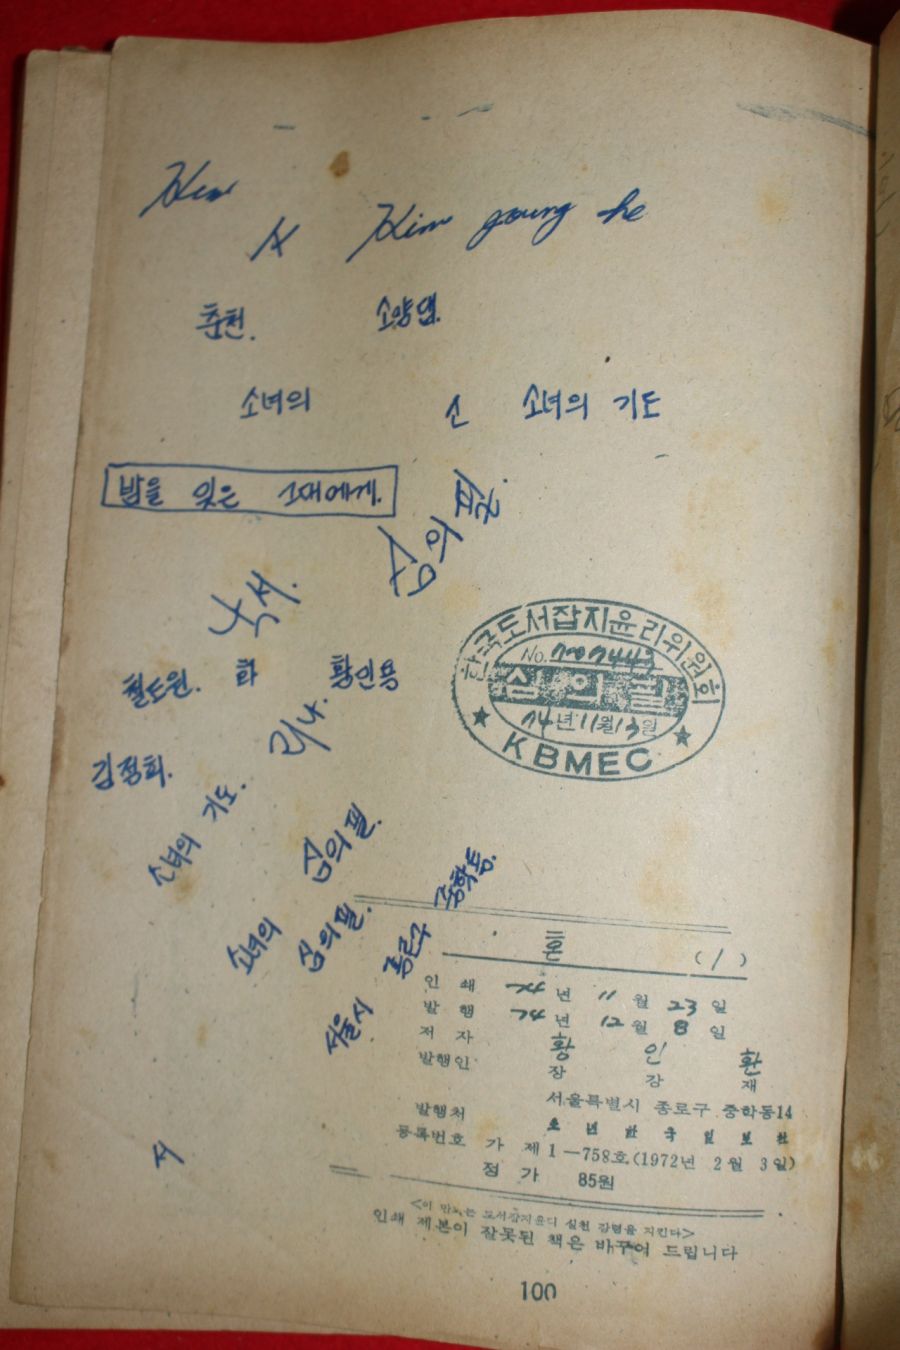 Kim
A Kim young he
춘천. 소양댐.
소녀의 신 소녀의 기도
밤을 잊은 그대에게.
심의필.
낙서.
한국도서잡지윤리위원회
심의필
74년11월13일
KBMEC
철도원. 화 황인용
리나.
김정희.
소녀의 기도.
심의필.
소녀의 심의필.
서울시 종로구 중학동.
혼 (1)
인쇄 74년 11월 23일
발행 74년 12월 8일
저자 황인환
발행인 장강재
서울특별시 종로구 중학동14
발행처 소년한국일보사
등록번호 가 제1—758호.(1972년 2월 3일)
정가 85원
서
<이 만화는 도서잡지윤리 실천 강령을 지킨다>
인쇄 제본이 잘못된 책은 바꾸어 드립니다
100